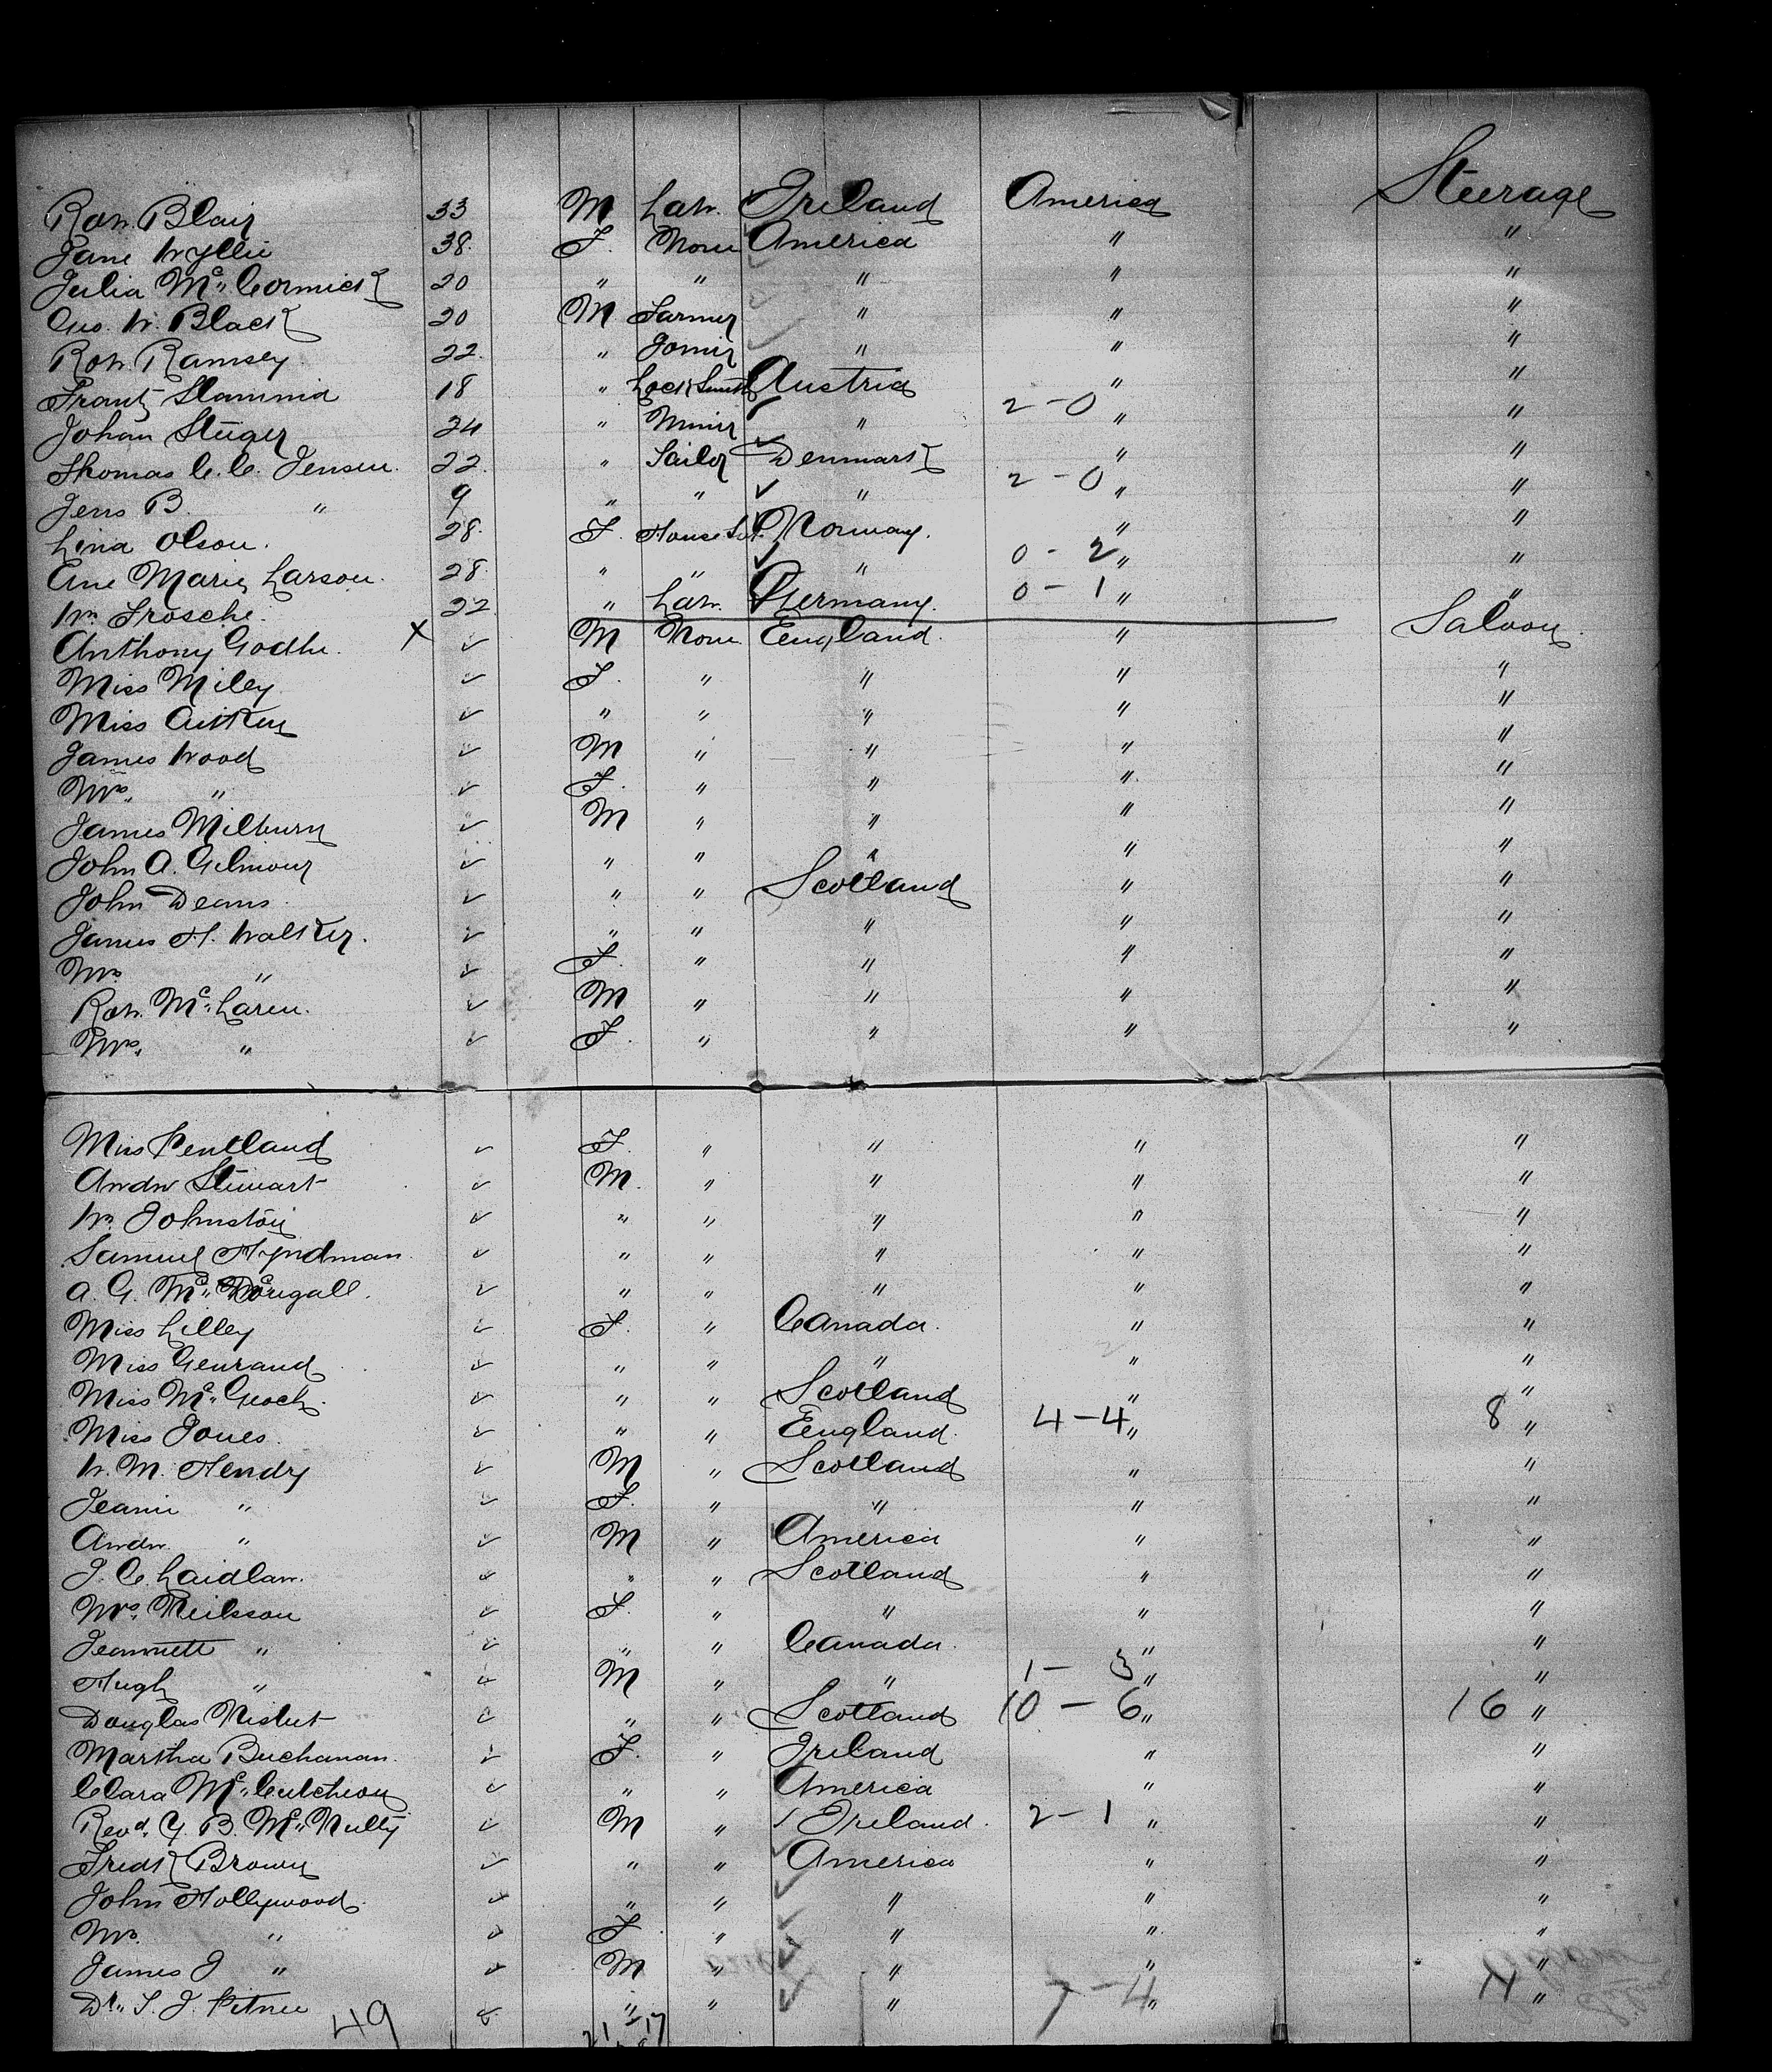 Robt. Blair 33 M Labr. Ireland America Steerage
Jane Wyllie 38 F. None America " "
Julia Mc. Cormick 20 " " " " "
Geo. W. Black 20 M Farmer " " "
Robt. Ramsey 22. " Joiner " " "
Frantz 18 " Lock Smith Austria " "
Johan Stüger 24 " Miner " 2 - 0 " "
Thomas C. C. Jensen. 22. " Sailor Denmark " "
Jens B. " 9 " " " 2 - 0 " "
Lina Olson. 28. F. House Norway. " "
Ane Marie Larson. 28. " " " 0 - 2 " "
Wm. Frosche. 22 " Labr. Germany. 0 - 1 " "
Anthony Godhe. x ✓ M None England. " Saloon.
Miss Miley ✓ F. " " " "
Miss Aitken ✓ " " " " "
James Wood ✓ M " " " "
Mrs. " ✓ F. " " " "
James Milburn ✓ M " " " "
John A. Gilmour ✓ " " " " "
John Deans ✓ " " Scotland " "
James H. Walker. ✓ " " " " "
Mrs. " ✓ F. " " " "
Robt. Mc. Laren. ✓ M " " " "
Mrs. " ✓ F. " " " "
Miss Pentland ✓ F. " " " "
Andw Stewart ✓ M. " " " "
Wm. Johnston ✓ " " " " "
Samuel Hyndman. ✓ " " " " "
A. G. Mc. Dougall. ✓ " " " " "
Miss Lilley ✓ F. " Canada. " "
Miss Genrand ✓ " " " " "
Miss Mc. Geoch. ✓ " " Scotland " "
Miss Jones. ✓ " " England. 4 - 4 " 8 "
W. M. Hendry ✓ M " Scotland " "
Jeanie " ✓ F. " " " "
Andw. " ✓ M " America " "
J. C. Laidlaw. ✓ " " Scotland " "
Mrs. Neilsson ✓ F. " " " "
Jeannett " ✓ " " Canada. " "
Hugh " ✓ M " " 1 - 3 " "
Douglas Nisbet ✓ " " Scotland 10 - 6 " 16 "
Martha Buchanan. ✓ F. " Ireland " "
Clara Mc. Cutcheon ✓ " " America " "
Revd. Y. B. Mc. Nulty ✓ M " Ireland. 2 - 1 " "
Fredk Brown ✓ " " America " "
John Hollywood. ✓ " " " " "
Mrs. " ✓ F " " " "
James J " ✓ M " " " "
Dr. S. J. Pitner ✓ " " " 7 - 4 " "
49 21 - 17